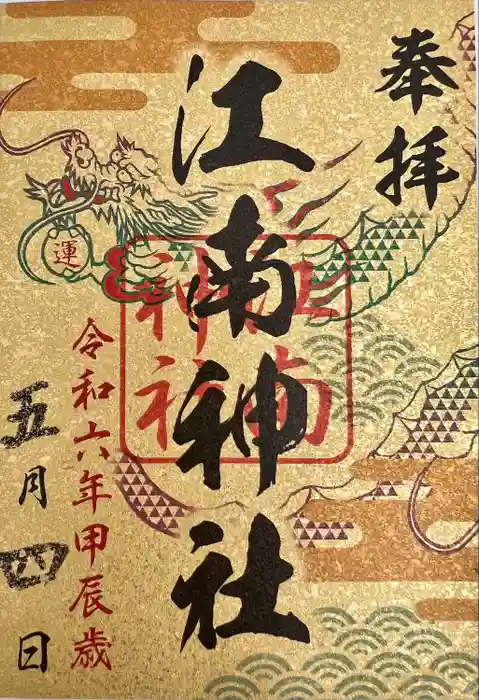 奉拝
江南神社
江南
神社
令和六年甲辰歳
五月四日
運